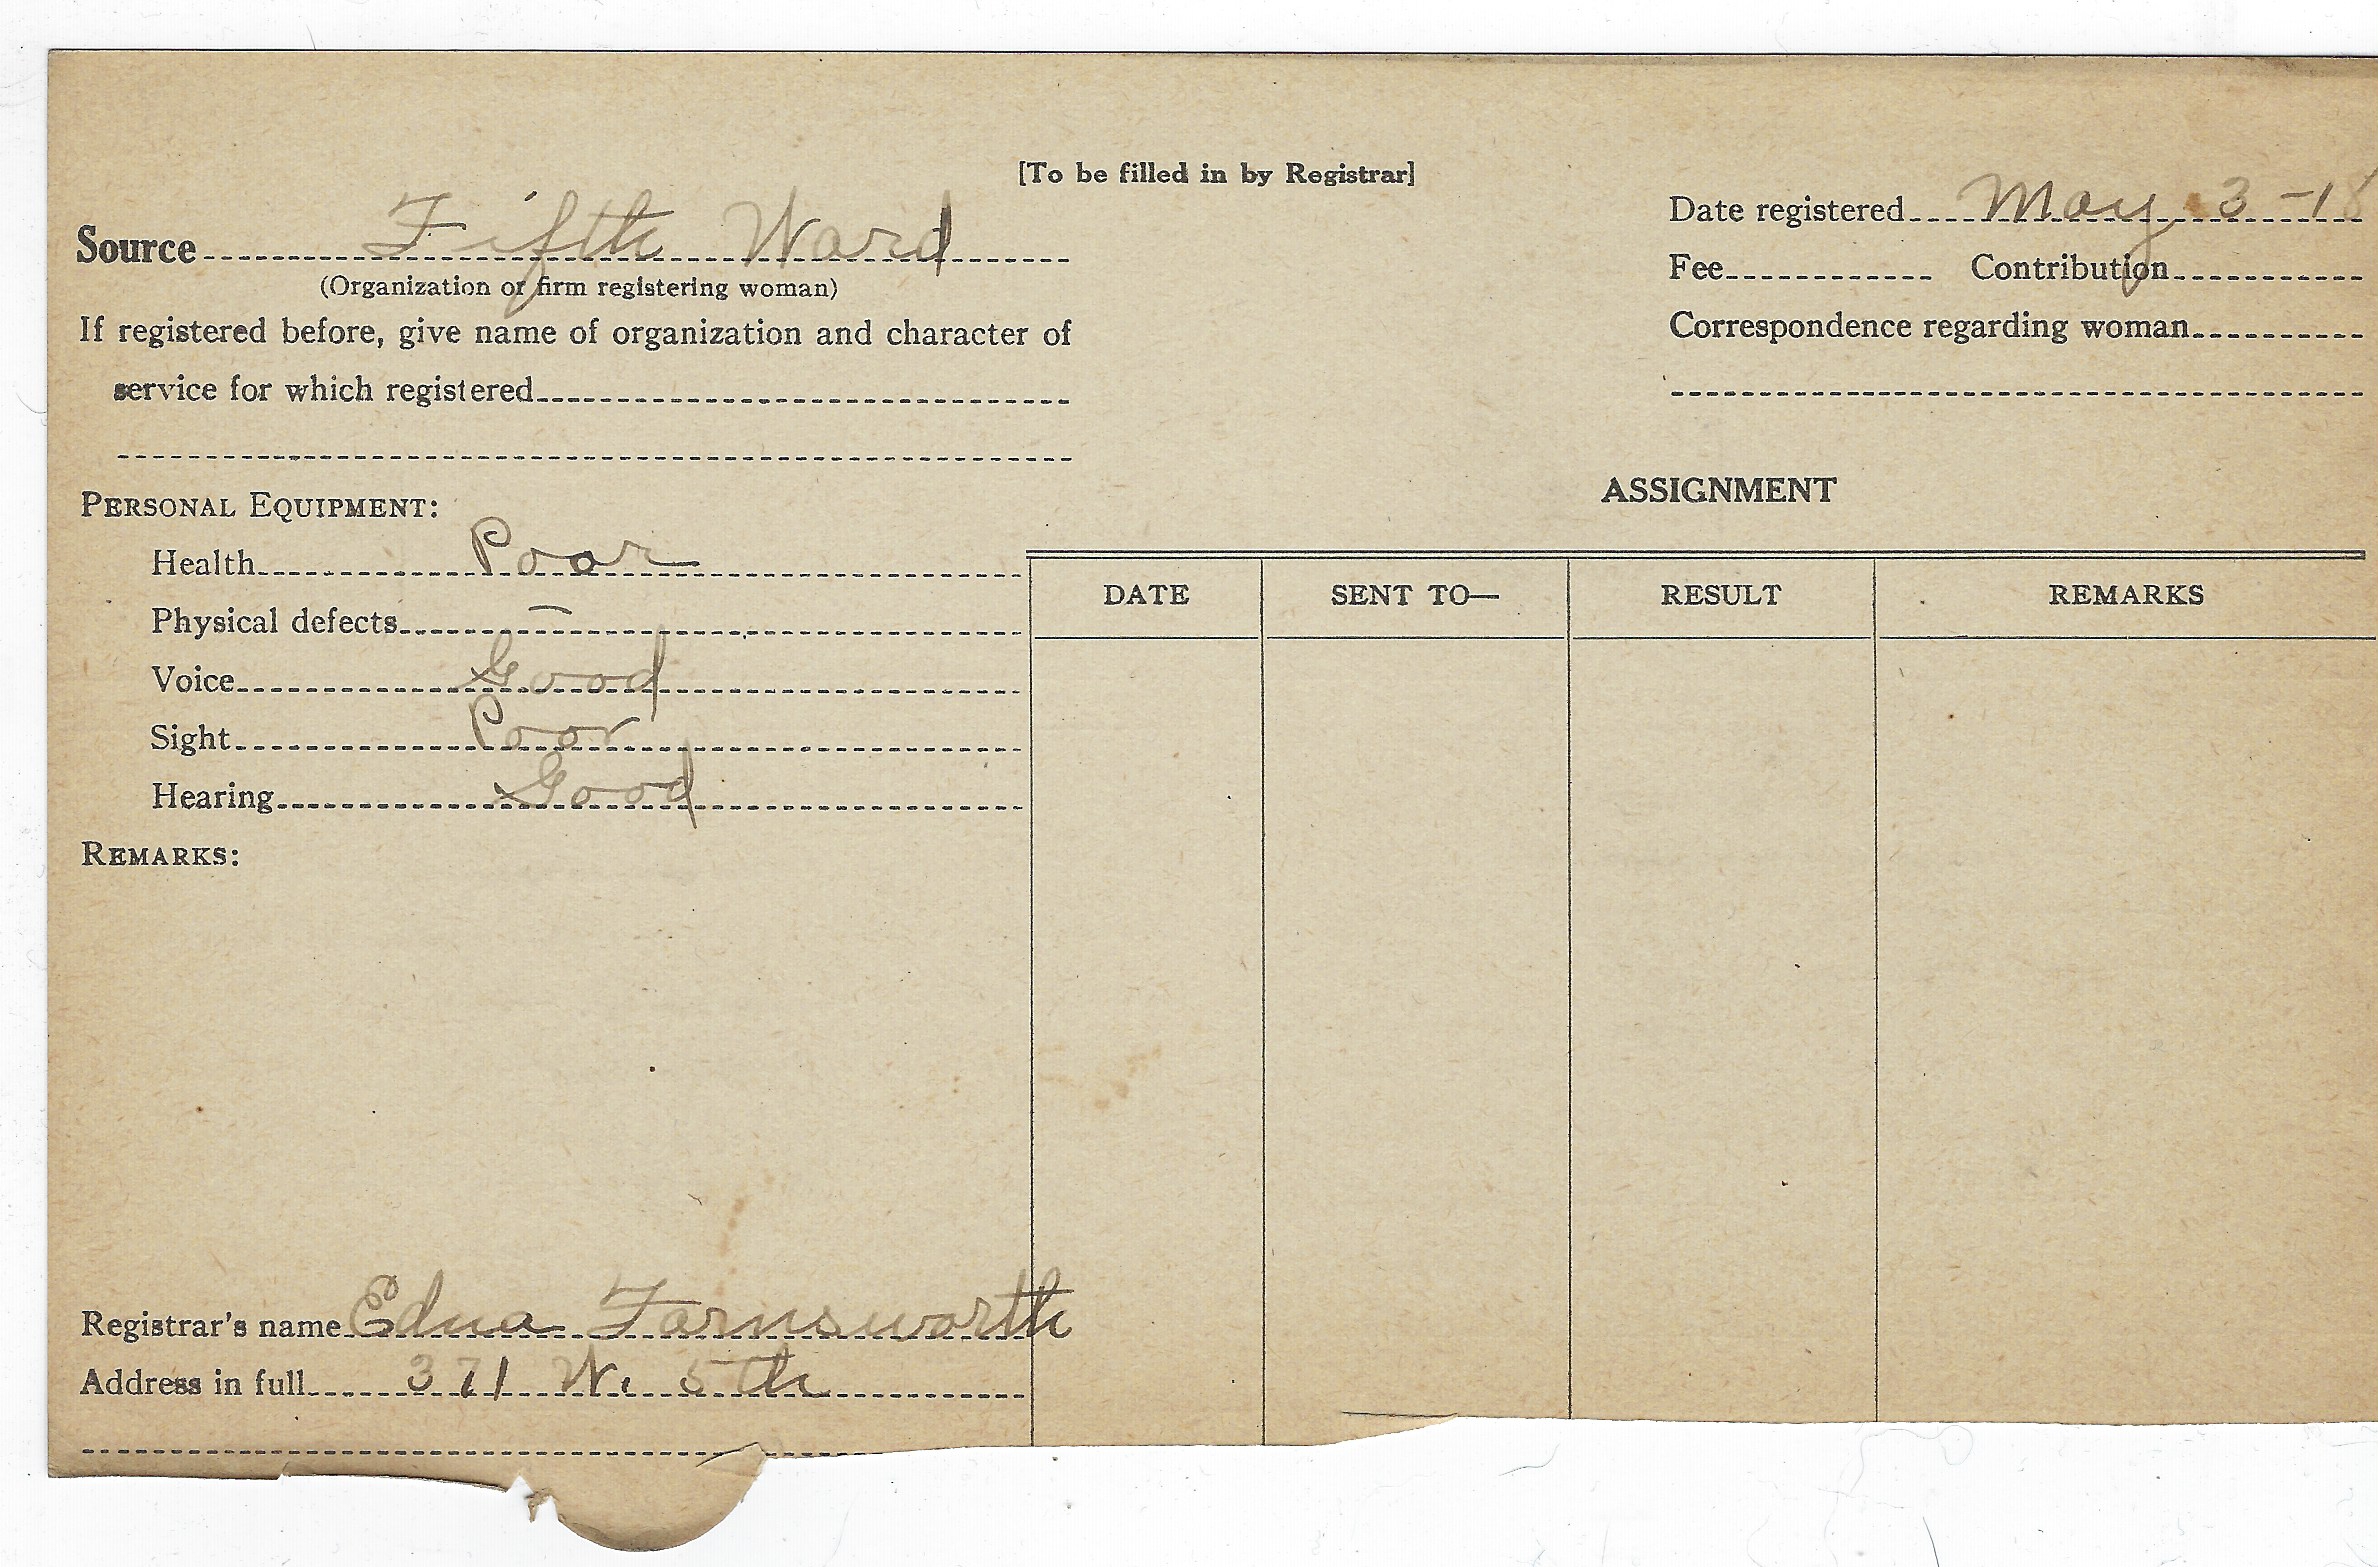 [To be filled in by Registrar]
Source Fifth Ward
(Organization or firm registering woman)
If registered before, give name of organization and character of
service for which registered
Date registered May 3-18
Fee Contribution
Correspondence regarding woman
PERSONAL EQUIPMENT:
Health Poor
Physical defects —
Voice Good
Sight Poor
Hearing Good
REMARKS:
ASSIGNMENT
DATE SENT TO— RESULT REMARKS
Registrar's name Edna Farnsworth
Address in full 371 W. 5th